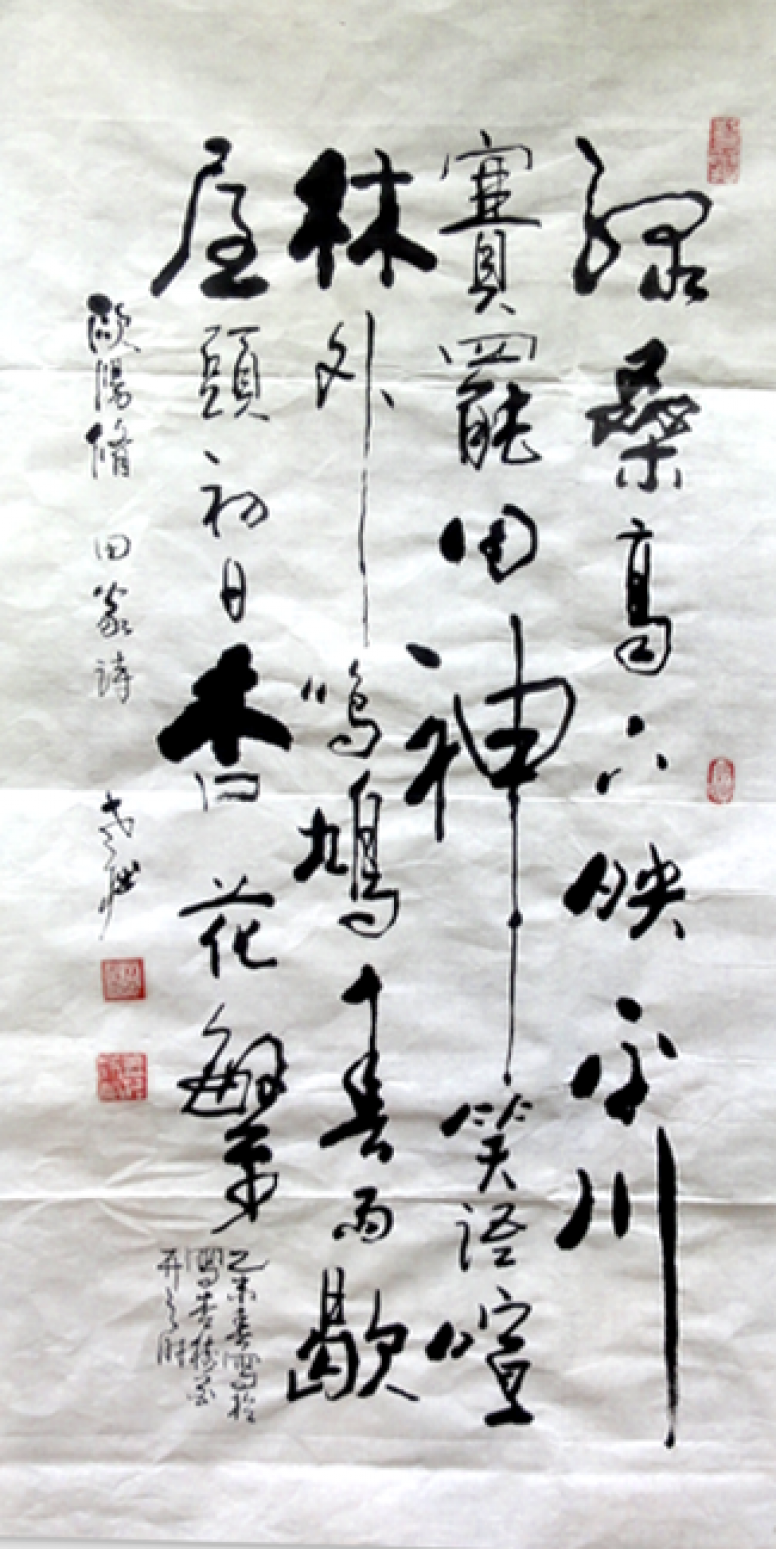 綠桑高下映平川
賽罷田神笑語喧
林外鳴鳩春雨歇
屋頭初日杏花繁
乙未春寫於
寫杏樓前
歐陽脩 田家詩